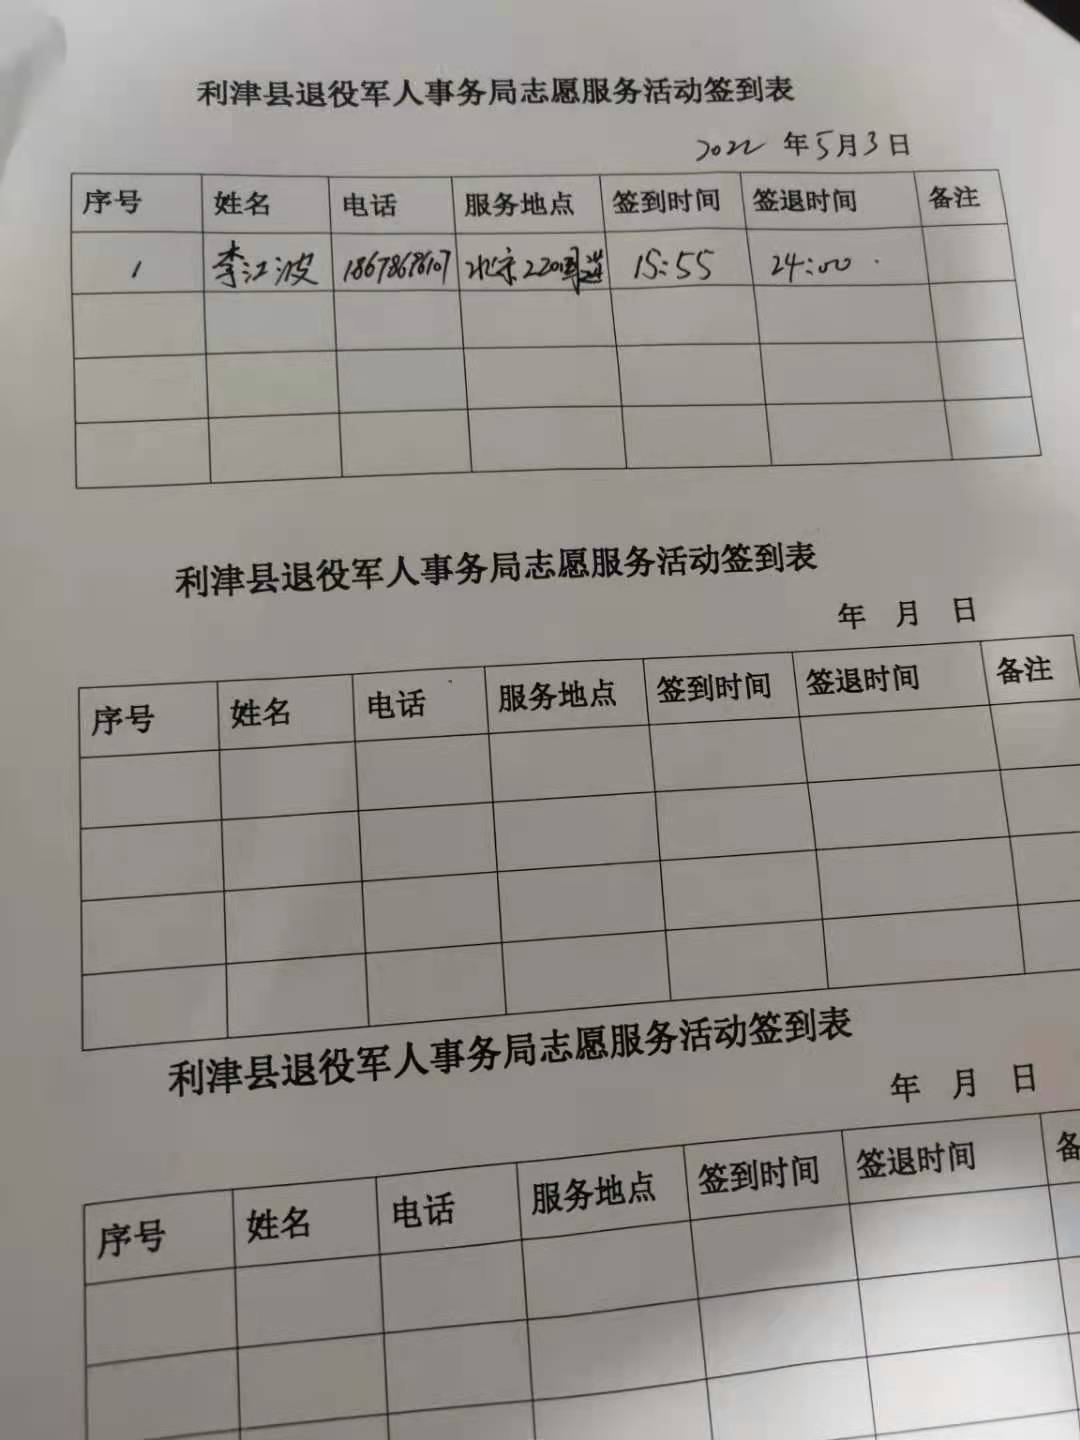 利津县退役军人事务局志愿服务活动签到表
2022 年5月3日
序号 姓名 电话 服务地点 签到时间 签退时间 备注
1 李江波 18678676107 15:55 24:00
利津县退役军人事务局志愿服务活动签到表
年 月 日
序号 姓名 电话 服务地点 签到时间 签退时间 备注
利津县退役军人事务局志愿服务活动签到表
年 月 日
序号 姓名 电话 服务地点 签到时间 签退时间 备